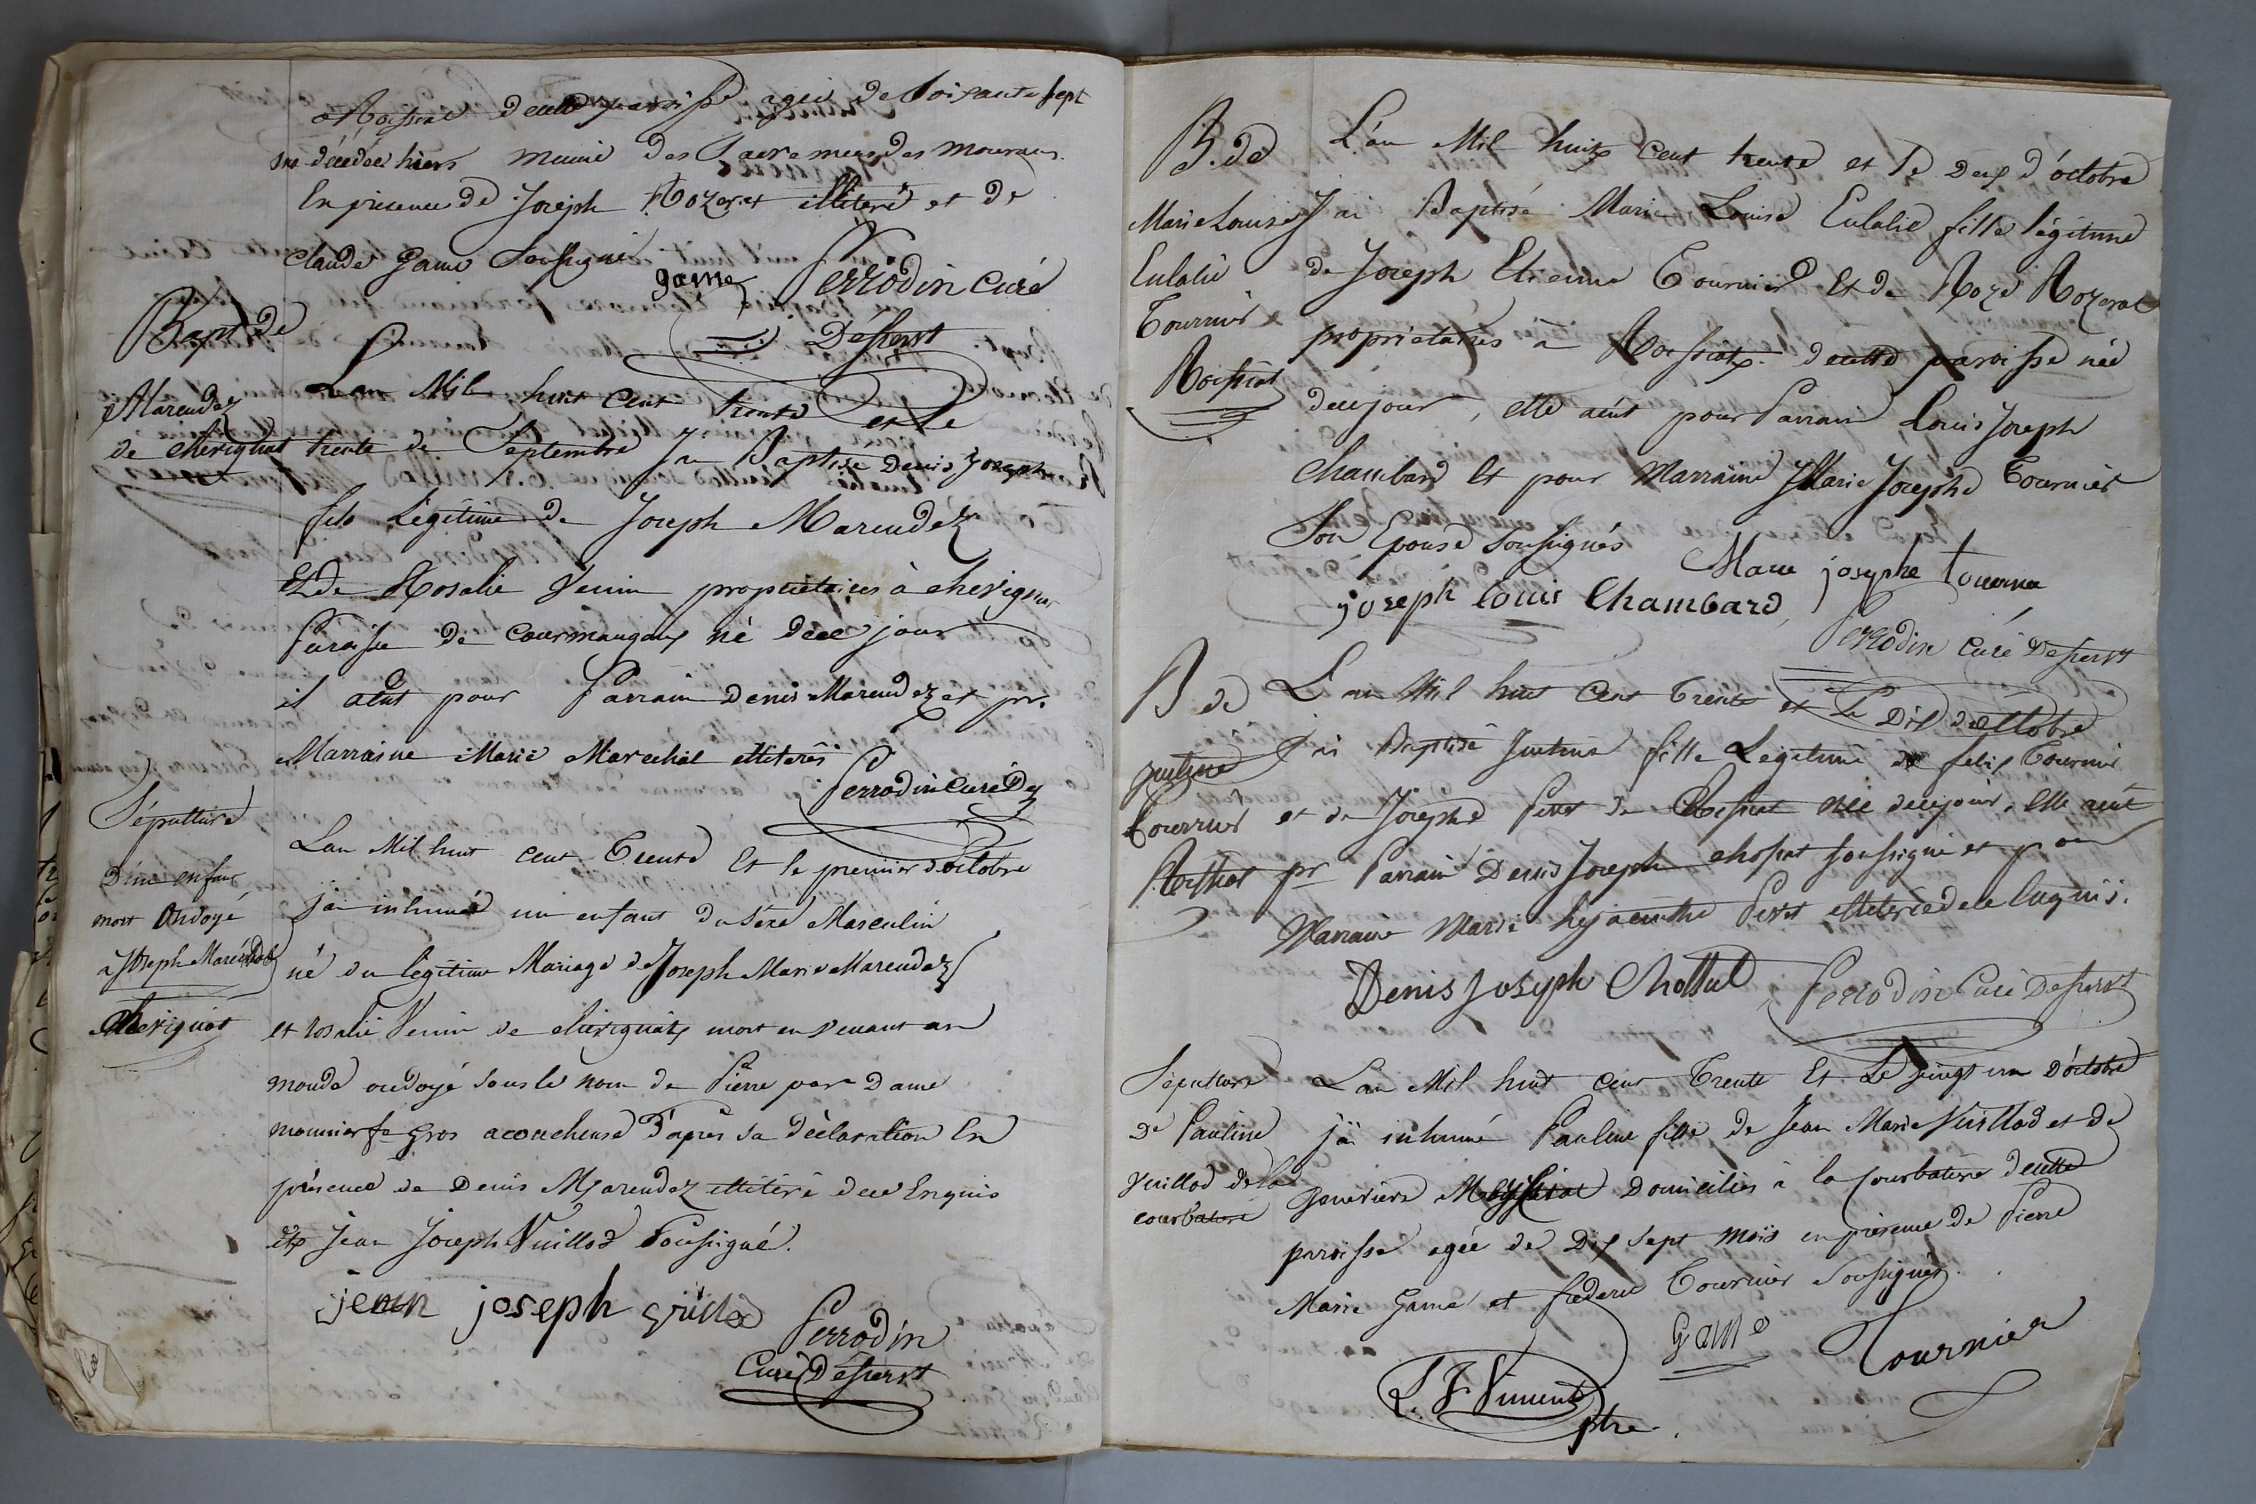 Roissiat decette paroisse agée de Soixante sept
décédée hiers munie des Sacremens des mourans
En présence de Joseph Rozerat illiteré et de
Claude Game Soussigné
game Perrodin curé
Déspersst
Bapt de
Marendez
de chevignat
L'an Mil huit cent trente et le
trente de Septembre J'ai Baptisé Denis Joseph
fils Légitime de Joseph Marendez
Et de Rosalie Venin propriétaires à chevignat
Paroisse de Courmangoux né dece jour
il aeut pour Parrain Denis Marendez et pr.
Marraine Marie Marechal illiterés
Perrodin Curé
Sépulture
D'une enfant
mort Ondoyé
a Joseph Marendez
Chevignat
L'an Mil huit cent Trente Et le premier d'octobre
j'ai inhumé un enfant du sexe Masculin
né du légitime Mariage de Joseph Marie Marendez
et rosalie Venin de chevignat mort en venant au
monde ondoyé sous le nom de Pierre par Dame
mounier fe Gros acoucheuse D'après sa déclaration En
présence de Denis Marendez illiteré dece Enquis
et Jean Joseph Vuillod Soussigné.
jean joseph vuillod
Perrodin
Curé
B. de
Marie Louise
Eulalie
Tournier
Roissiat
L'an Mil huit cent trente et le Deux d'octobre
J'ai Baptisé Marie Louise Eulalie fille légitime
de Joseph Etienne Tournier Et de Roze Rozerat
propriétaires à Roissiat decette paroisse née
decejour, elle aeut pour Parrain Louis Joseph
Chambard Et pour Marraine Marie Josephe Tournier
Son Epouse soussignés
Marie josephe tournier
joseph louis Chambard
Perrodin curé
B de
Tournier
Roissiat
L'an Mil huit Cent Trente et Le Dix d'octobre
J'ai Baptisé Justine fille Légitime de felix Tournier
et de Josephe Perret de Roissiat née decejour, elle aeut
pr Parrain Denis Joseph chossat soussigné et pour
Marraine Marie hyacinthe Perret illiterée dece Enquis.
Denis Joseph Chossat
Perrodin Curé
Sépulture
De Pauline
Vuillod de la
courbatiere
L'an Mil huit cent Trente Et Le vingt un D'octobre
j'ai inhumé Pauline fille de Jean Marie Vuillod et de
Genevieve Domiciliés à la Courbatiere decette
paroisse agée de Dix sept mois en présence de Pierre
Marie Game et frederic Tournier Soussignés.
Game
Tournier
L. F Vincent
ptre.